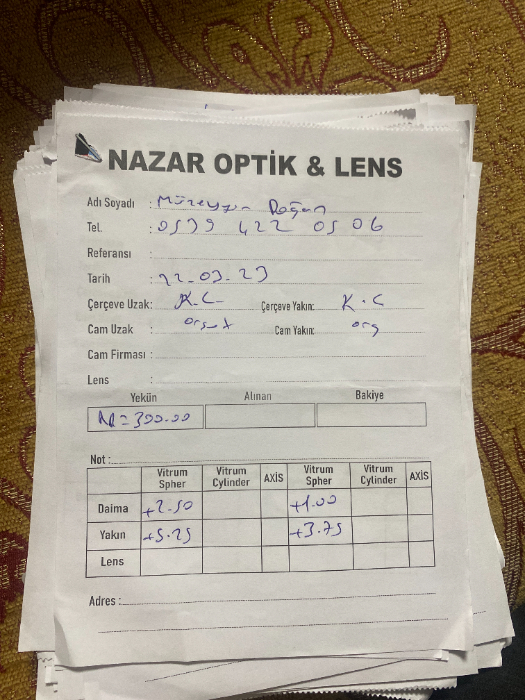 NAZAR OPTİK & LENS
Adı Soyadı : Müzeyyen Doğan
Tel. : 0539 422 05 06
Referansı :
Tarih : 22-03-23
Çerçeve Uzak: K.C- Çerçeve Yakın: K.C
Cam Uzak : Cam Yakın: org
Cam Firması :
Lens :
Yekün Alınan Bakiye
N=300.00
Not :
Vitrum Spher Vitrum Cylinder AXİS Vitrum Spher Vitrum Cylinder AXİS
Daima +2.50 +1.00
Yakın +5.25 +3.75
Lens
Adres :